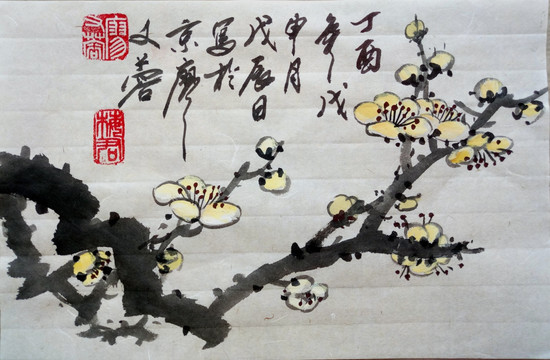 丁酉
年戊
申月
戊辰日
写於
京廖
文蓉